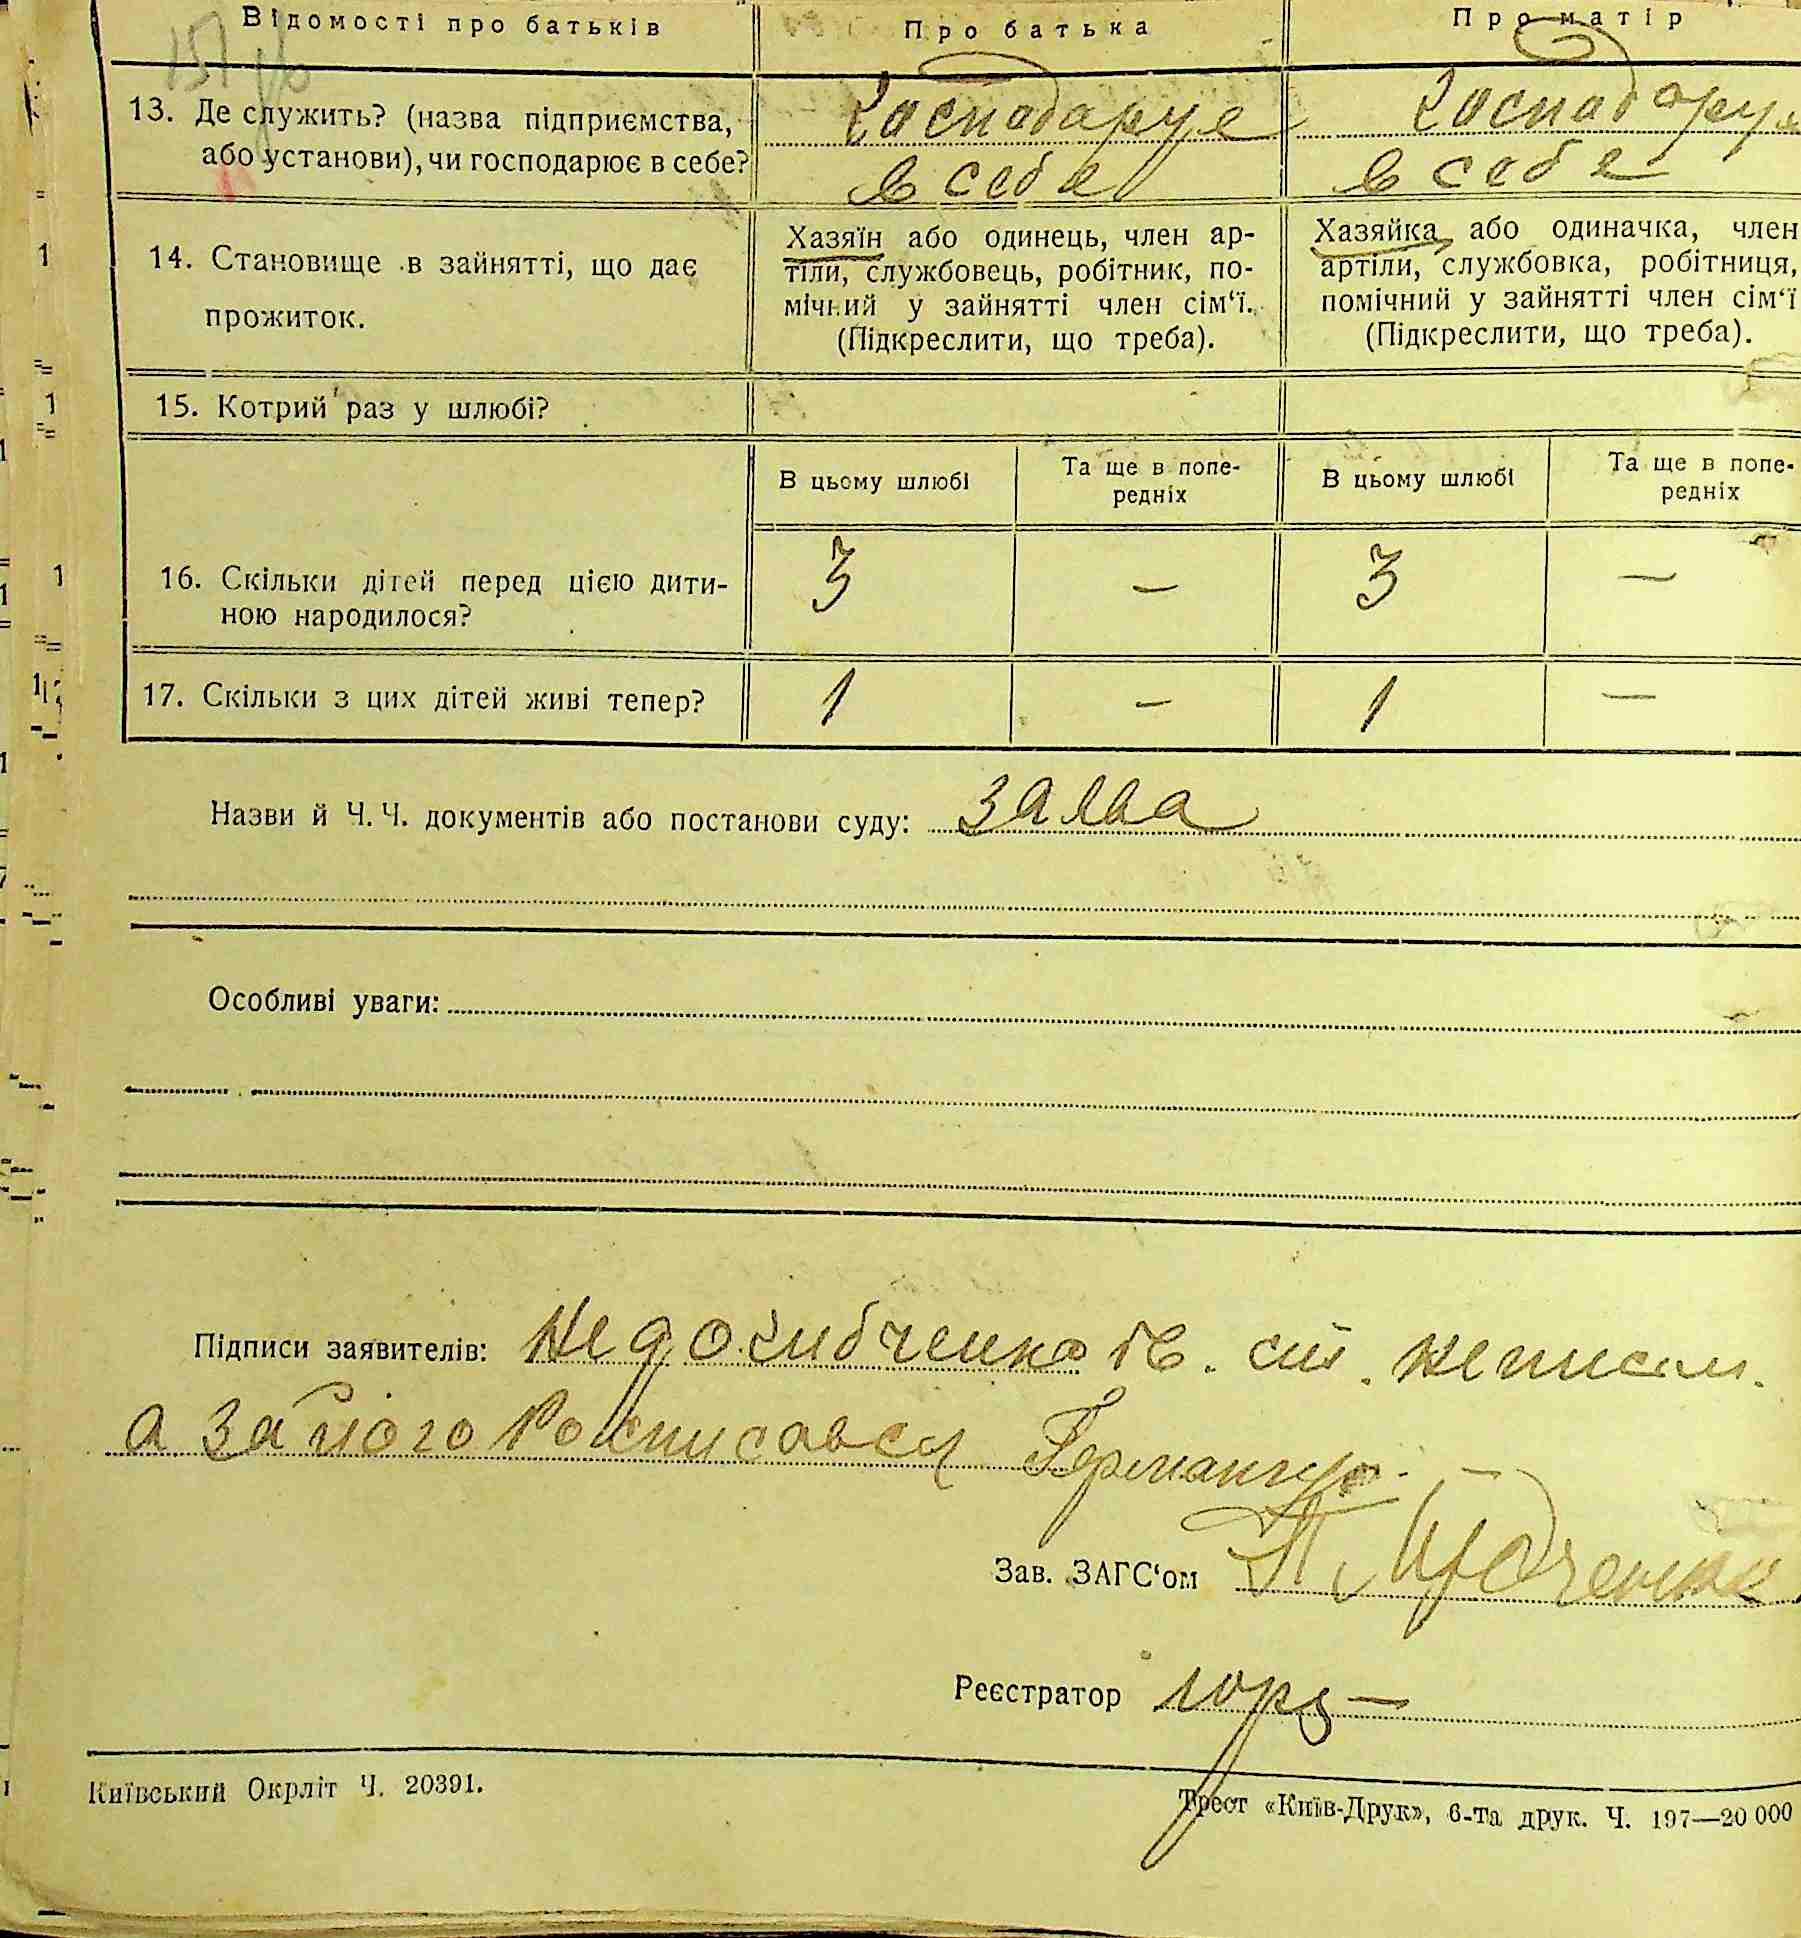 Відомості про батьків Про батька Про матір
13. Де служить? (назва підприємства, Господарує Господарує
або установи), чи господарює в себе? в себе в себе
14. Становище в зайнятті, що дає
прожиток.
Хазяїн або одинець, член ар-
тіли, службовець, робітник, по-
мічний у зайнятті член сім‘ї.
(Підкреслити, що треба).
Хазяйка або одиначка, член
артіли, службовка, робітниця,
помічний у зайнятті член сім‘ї
(Підкреслити, що треба).
15. Котрий раз у шлюбі?
В цьому шлюбі Та ще в попе-
редніх В цьому шлюбі Та ще в попе-
редніх
16. Скільки дітей перед цією дити-
ною народилося? 3 — 3 —
17. Скільки з цих дітей живі тепер? 1 — 1 —
Назви й Ч. Ч. документів або постанови суду: заява
Особливі уваги:
Підписи заявителів: Недохибченко
а за його Росписався
Зав. ЗАГС‘ом
Реєстратор
Київський Окрліт Ч. 20391.
Трест «Київ-Друк», 6-та друк. Ч. 197—20 000